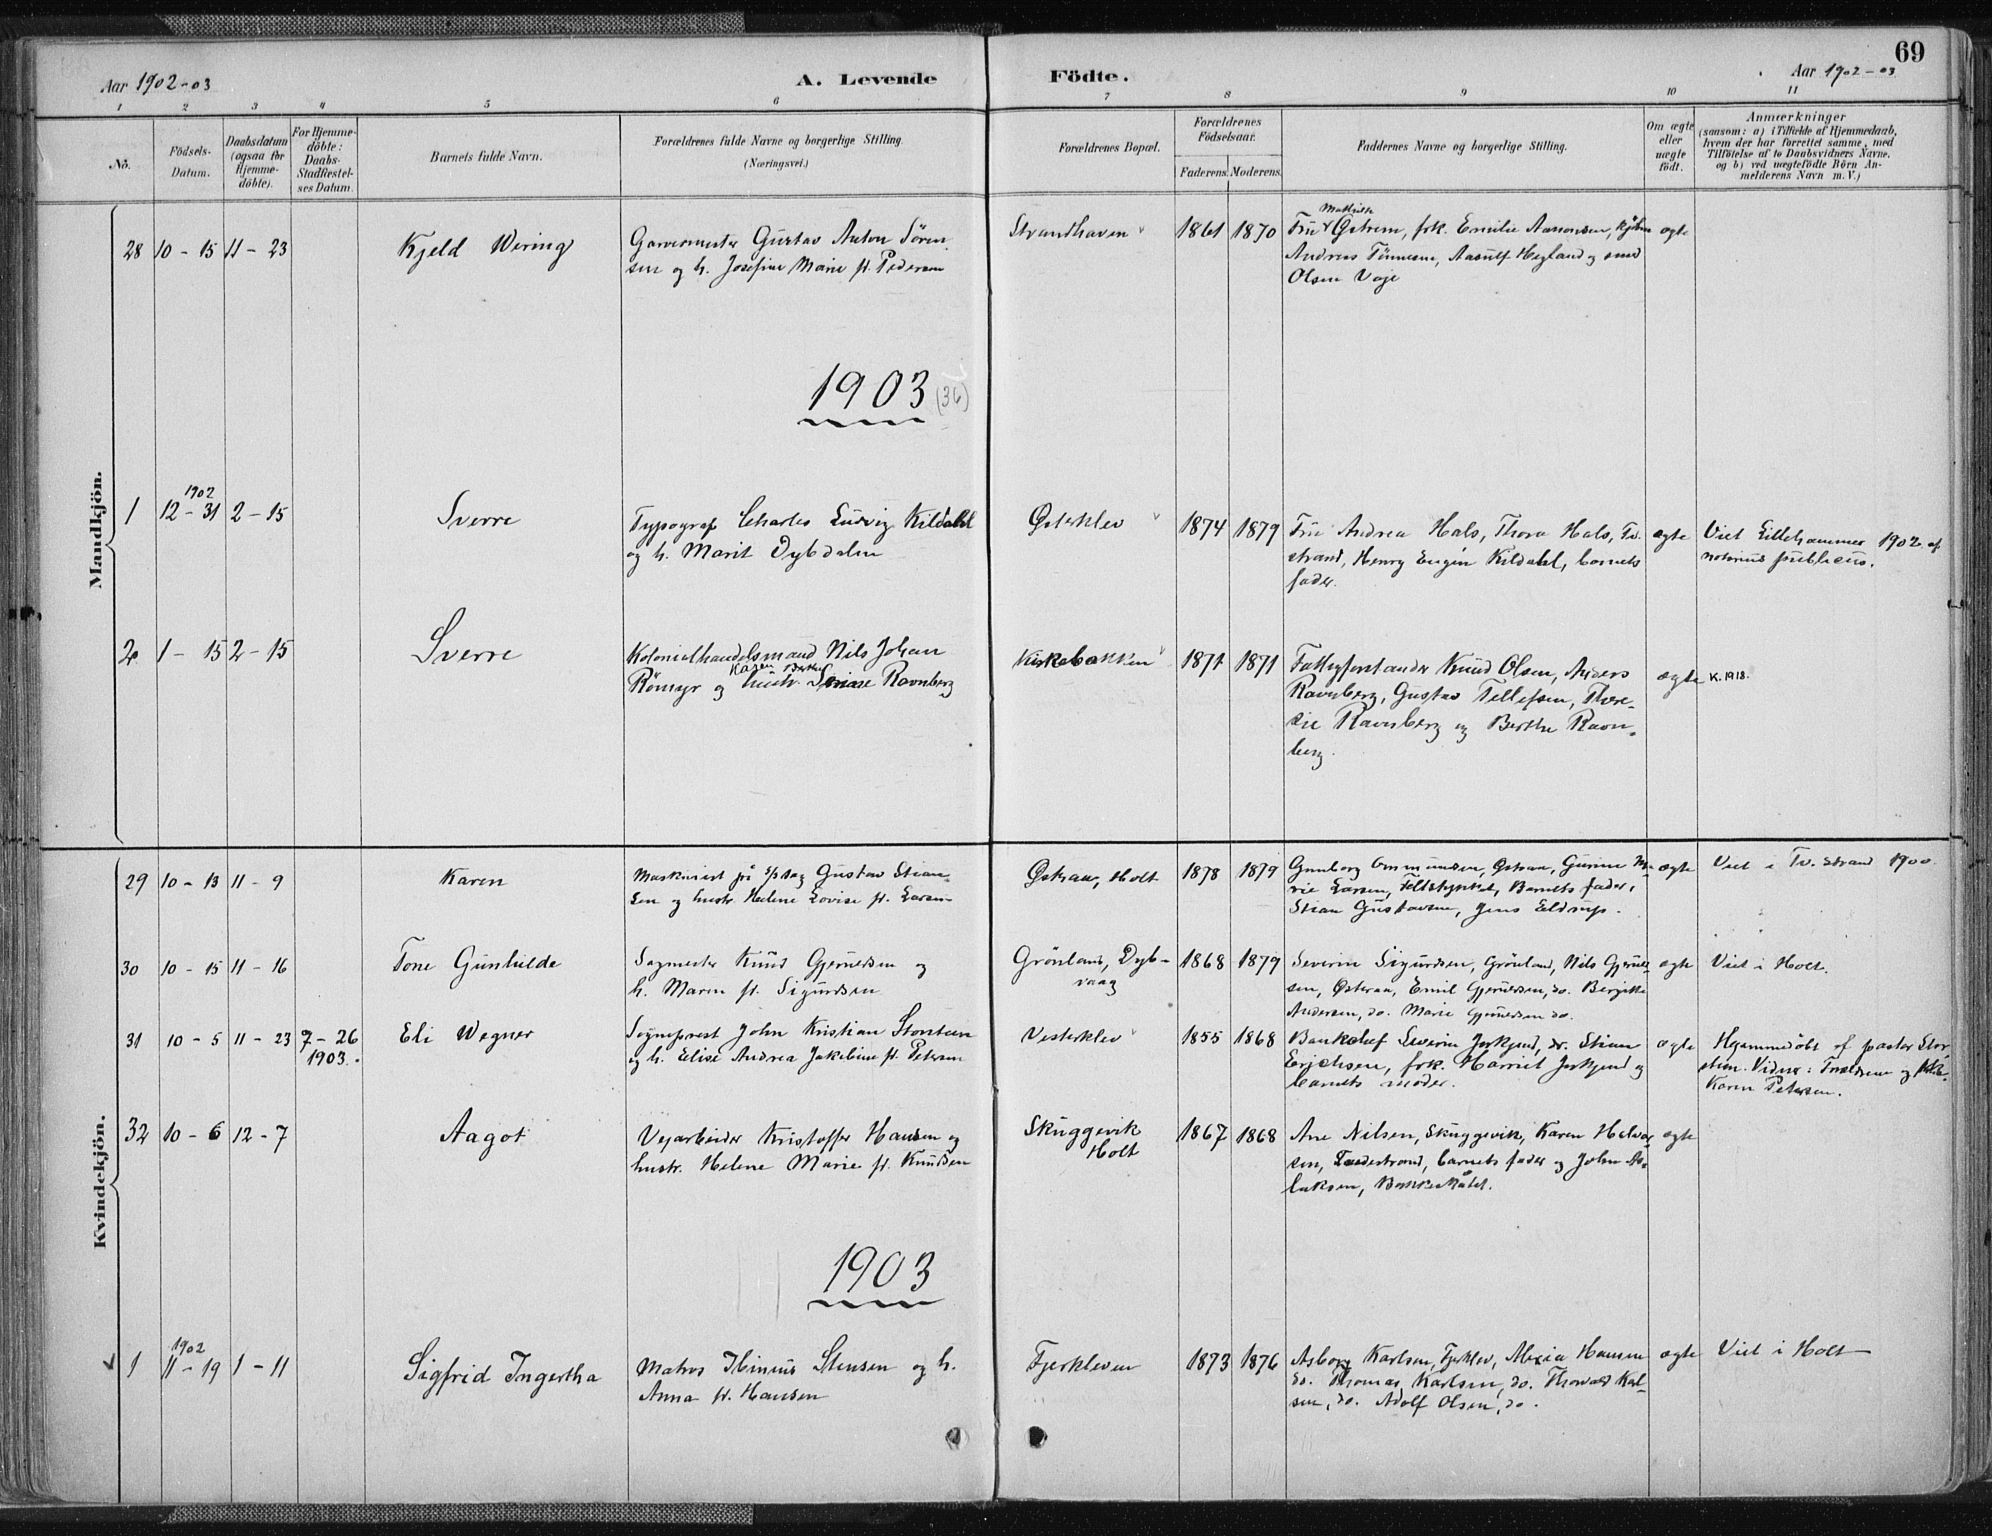 69
Aar 1902-03
A. Levende Födte.
Aar 1902-03
1 2 3 4 5 6 7 8 9 10 11
Nö.
Födsels-
Datum.
Daabsdatum
(ogsaa for
Hjemme-
döbte).
For Hjemme-
döbte:
Daabs-
Stadfæstel-
ses Datum.
Barnets fulde Navn.
Forældrenes fulde Navne og borgerlige Stilling.
(Næringsvei.)
Forældrenes Bopæl.
Forældrenes
Födselsaar.
Faderens. Moderens.
Faddernes Navne og borgerlige Stilling.
Om ægte
eller
uægte
födt.
Anmærkninger
(saasom: a) i Tilfælde af Hjemmedaab,
hvem der har forrettet samme, med
Tilföielse af to Daabsvidners Navne,
og b) ved uægtefödte Börn An-
melderens Navn m. V.)
Mandkjön.
28 10-15 11-23 Kjeld Wering
Garvermester Gustav Anton Sören-
sen og h. Josefine Marie f. Pedersen
Strandhaven
1861 1870
Mathilde
Fru Ostrem, frk. Emilie Aanonsen, kjöbm
Andreas Tönnesen, Aasulf Hegland og smed
Olsen Voje
ægte
1903 (36)
1902
1 12-31 2-15 Sverre
Typograf Charles Ludvig Kildahl
og h. Marit Dybdalen
Østerklev
1874 1879
Fru Andrea Hals, Thora Hals, Tv.
strand, Henry Eugén Kildahl, barnets
fader.
ægte
Viet Lillehammer 1902 af
notarius publicus.
2 1-15 2-15 Sverre
Kolonialhandelsmand Nils Johan
Karen
Römyr og hustr. Ravnberg
Kirkebakken
1871 1871
Fattigforstander Knud Olsen, Anders
Ravnberg, Gustav Tellefsen, There-
sie Ravnberg og Berthe Ravn-
berg.
ægte
K. 1918.
Kvindekjön.
29 10-13 11-9 Karen
Maskinist på Gustav Stian-
sen og hustr. Helene Lovise f. Larsen
Østeraa, Holt
1878 1879
Gunborg Ommundsen, Østeraa, Gurine Ma-
rie Larsen, Barnets fader,
Stian Gustavsen, Jens Eldrup.
ægte
Viet i Tv. strand 1900.
30 10-15 11-16 Tone Gunhilde
Sagmester Knud Gjeruldsen og
h. Maren f. Sigurdsen
Grönland, Dyb-
vaag
1868 1879
Severin Sigurdsen, Grönland, Nils Gjeruld-
sen, Østeraa, Emil Gjeruldsen, do. Bergitte
Andersen, do. Marie Gjeruldsen do.
ægte
Viet i Holt.
31 10-5 11-23 7-26
1903.
Eli Wegner
Sogneprest John Kristian Storsteen
og h. Elise Andrea Jakobine f. Petersen
Vesterklev
1855 1868
Bankchef Severin Jorkjend, dr. Stian
Erichsen, frk. Harriet Jorkjend og
barnets moder.
ægte
Hjemmedöbt af pastor Stor-
steen. Vidner: Forældrene og frk.
Karen Petersen.
32 10-6 12-7 Aagot
Vejarbeider Kristoffer Hansen og
hustr. Helene Marie f. Knudsen
Skuggevik
Holt
1867 1868
Ane Nilsen, Skuggevik, Karen Halvor-
sen, Tvedestrand, barnets fader og John As-
laksen,
ægte
1903
1902
1 11-19 1-11 Sigfrid Ingertha
Matros Stensen og h.
Anna f. Hansen
Fjerkleven
1873 1876
Asborg Karlsen, Fjerklev, Alexia Hansen
do. Thomas Karlsen, do. Thorvald Karl-
sen, do. Adolf Olsen, do.
ægte
Viet i Holt